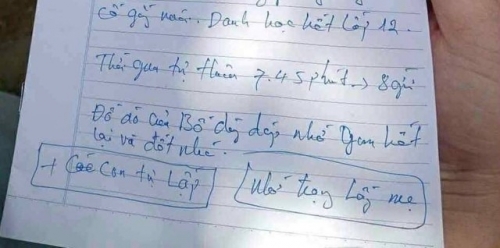 cố gắng nuôi. Danh học hết lớp 12.
Thời gian tự thiêu 7.45 phút → 8 giờ
Đồ đò của Bố dày dép nhớ gom hết
lại và đốt nhé.
+ Các con tự lập
Nhớ trọng lấy mẹ